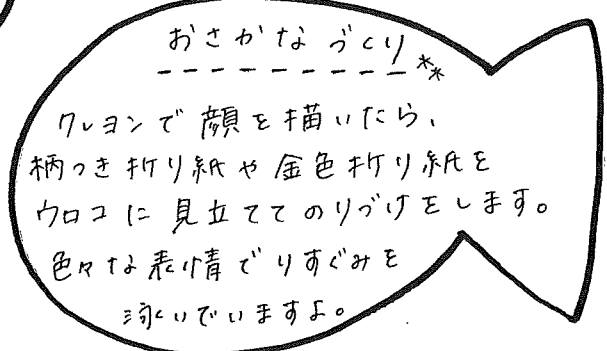 おさかなづくり**
クレヨンで顔を描いたら、
柄つき折り紙や金色折り紙を
ウロコに見立ててのりづけをします。
色々な表情でりすぐみを
泳いでいますよ。